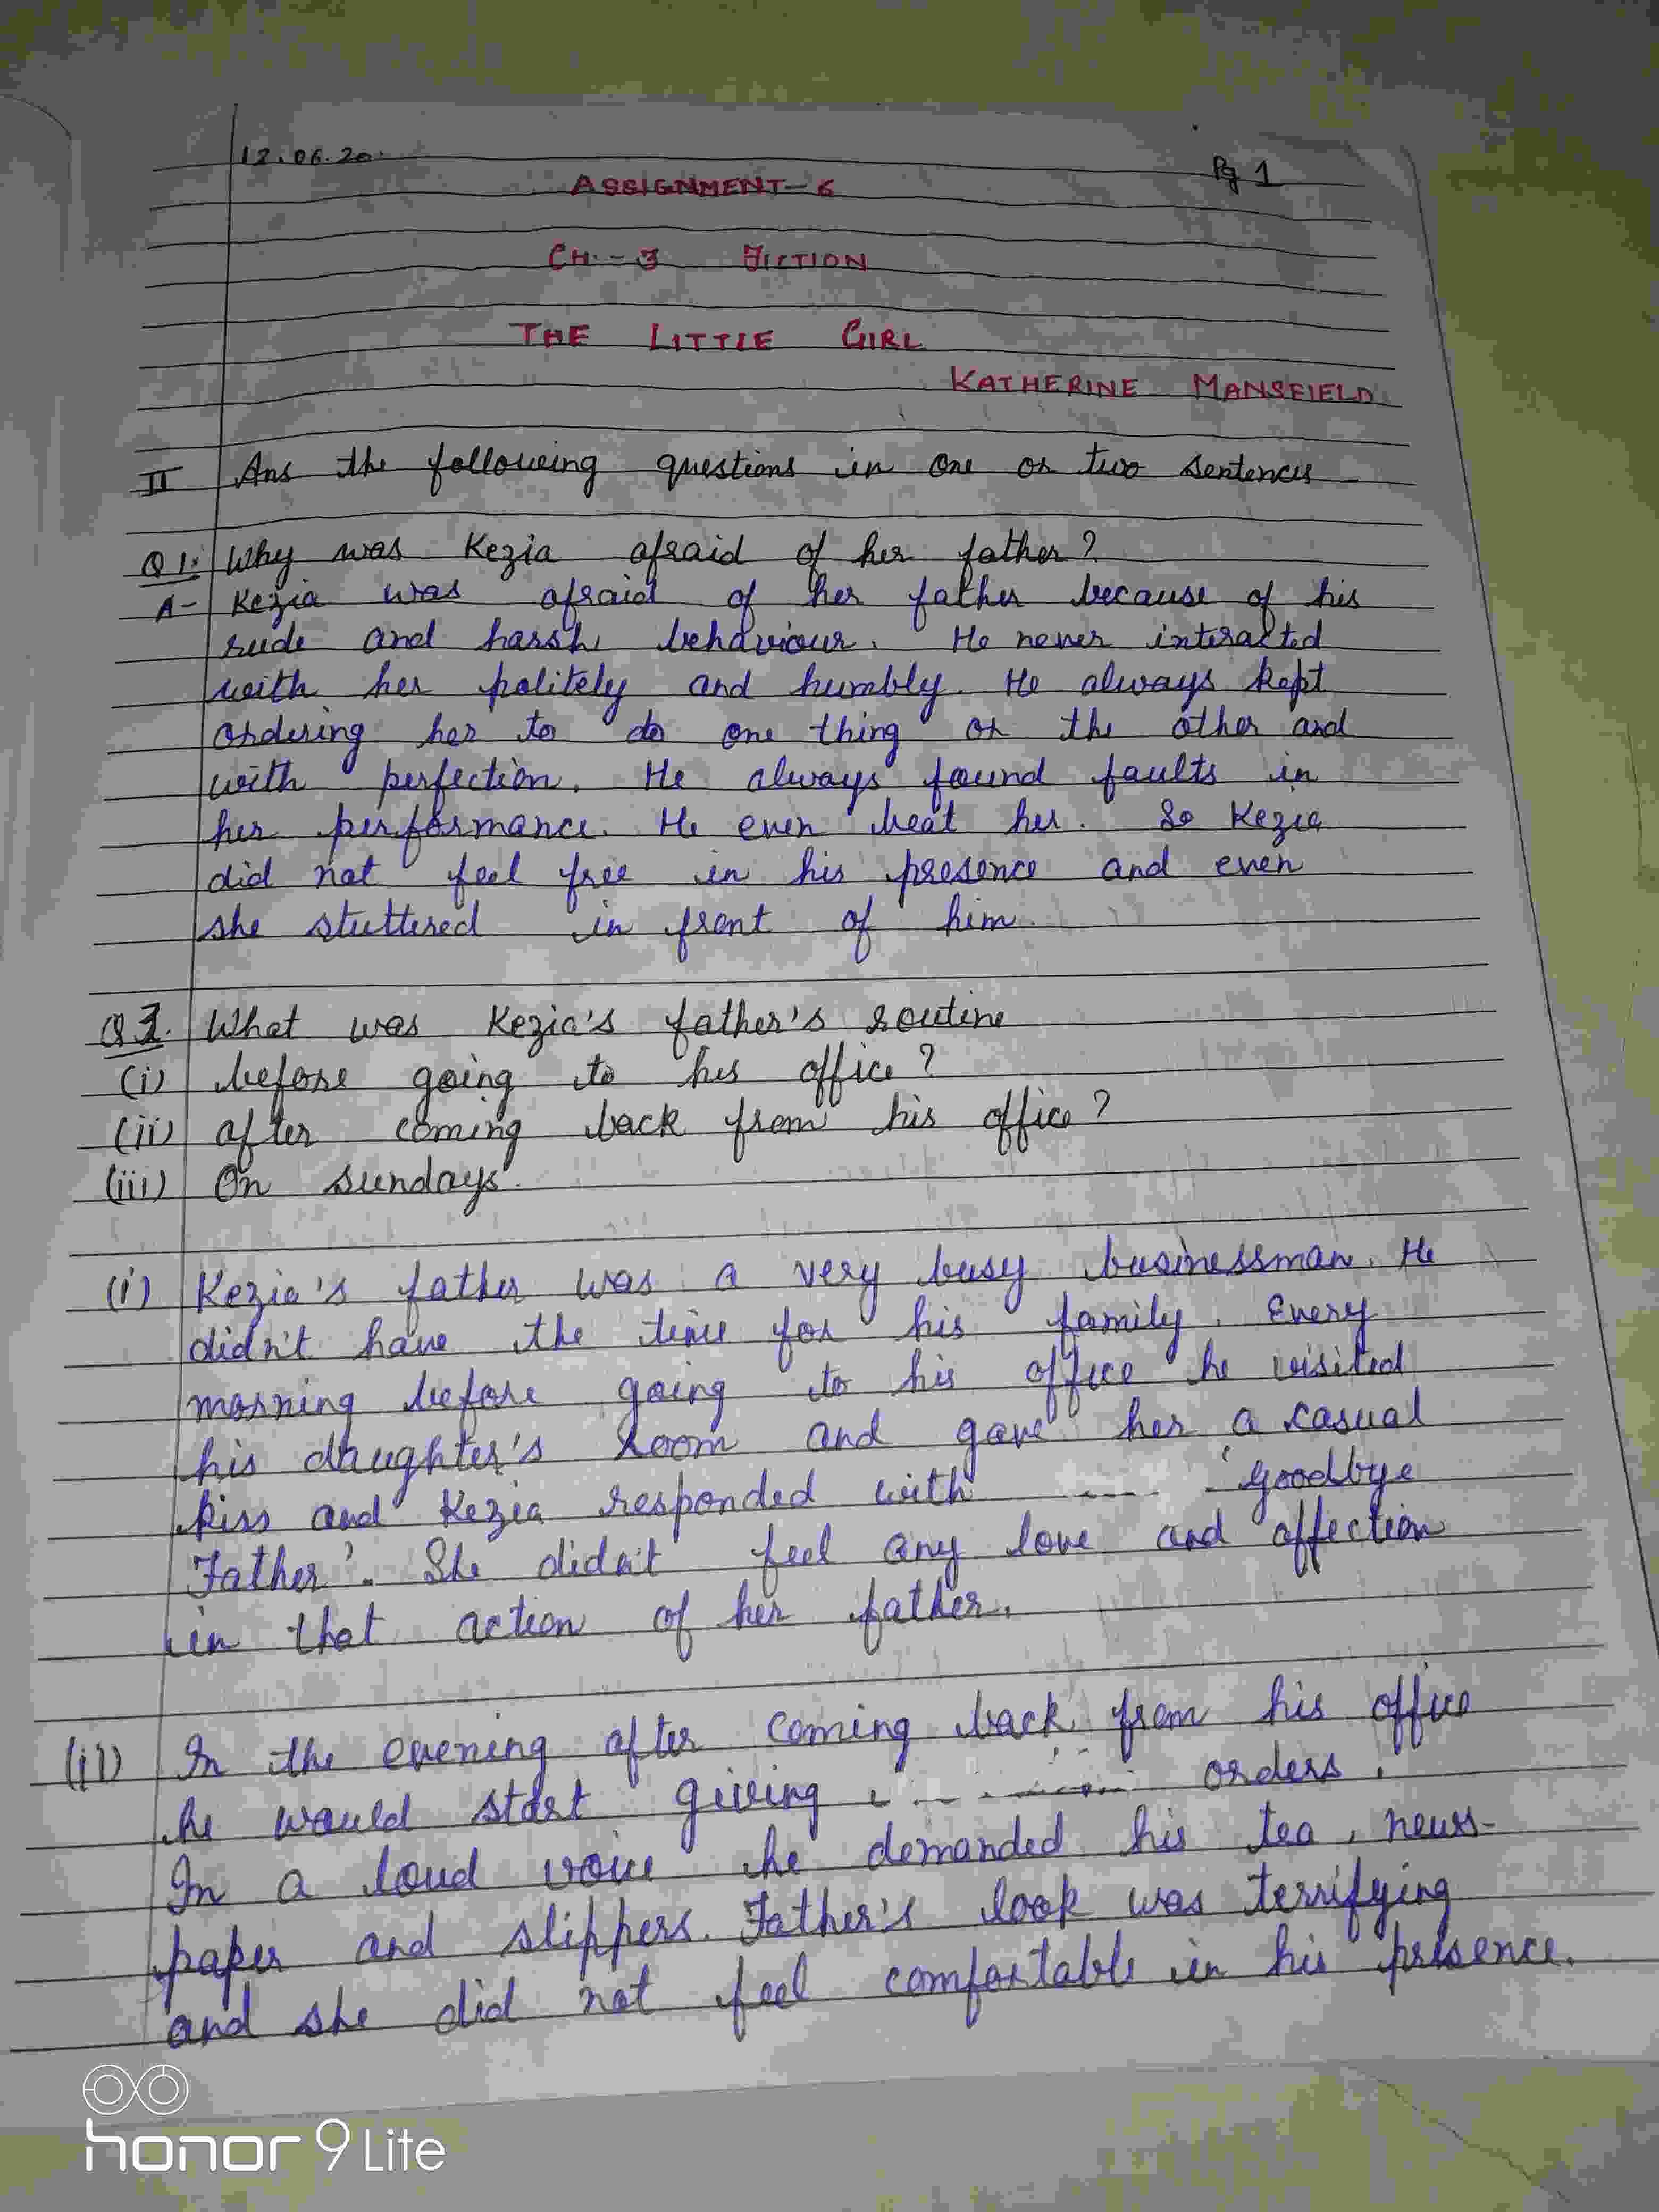 12.06.20
Pg 1
ASSIGNMENT-6
CH.-3 FICTION
THE LITTLE GIRL
KATHERINE MANSFIELD
II Ans the following questions in one or two sentences
Q1. Why was Kezia afraid of her father?
A- Kezia was afraid of her father because of his
rude and harsh behaviour. He never interacted
with her politely and humbly. He always kept
ordering her to do one thing or the other and
with perfection. He always found faults in
her performance. He even beat her. So Kezia
did not feel free in his presence and even
she stuttered in front of him.
Q2. What was Kezia's father's routine
(i) before going to his office?
(ii) after coming back from his office?
(iii) On Sundays.
(i) Kezia's father was a very busy businessman. He
didn't have the time for his family. Every
morning before going to his office he visited
his daughter's room and gave her a casual
kiss and Kezia responded with 'goodbye
Father'. She didn't feel any love and affection
in that action of her father.
(ii) In the evening after coming back from his office
he would start giving orders.
In a loud voice he demanded his tea, news-
paper and slippers. Father's look was terrifying
and she did not feel comfortable in his presence.
honor 9 Lite